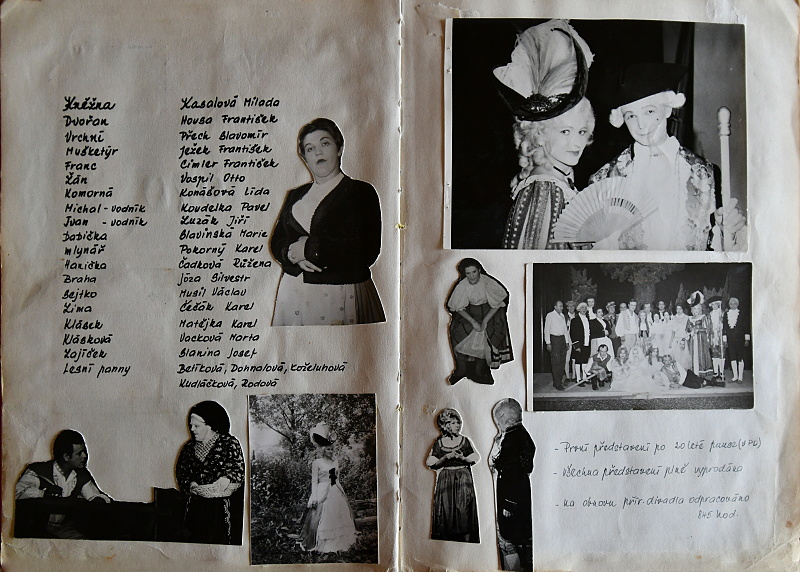 Kněžna Kasalová Milada
Dvořan Housa František
Vrchní Přech Slavomír
Mušketýr Ježek František
Franc Cimler František
Žán Vospil Otto
Komorná Konášová Lída
Michal - vodník Koudelka Pavel
Ivan - vodník Luzák Jiří
Babička Slavinská Marie
Mlynář Pokorný Karel
Hanička Čadková Růžena
Braha Józa Silvestr
Sejtko Musil Václav
Zima Čežák Karel
Klásek Matějka Karel
Klásková Vacková Marta
Zajíček Slanina Josef
Lesní panny Betíková, Dohnalová, Koželuhová
Kudláčková, Rodová
- První představení po 20 leté pauze
- všechna představení plně vyprodána
- na obnovu přír. divadla odpracováno
845 hod.